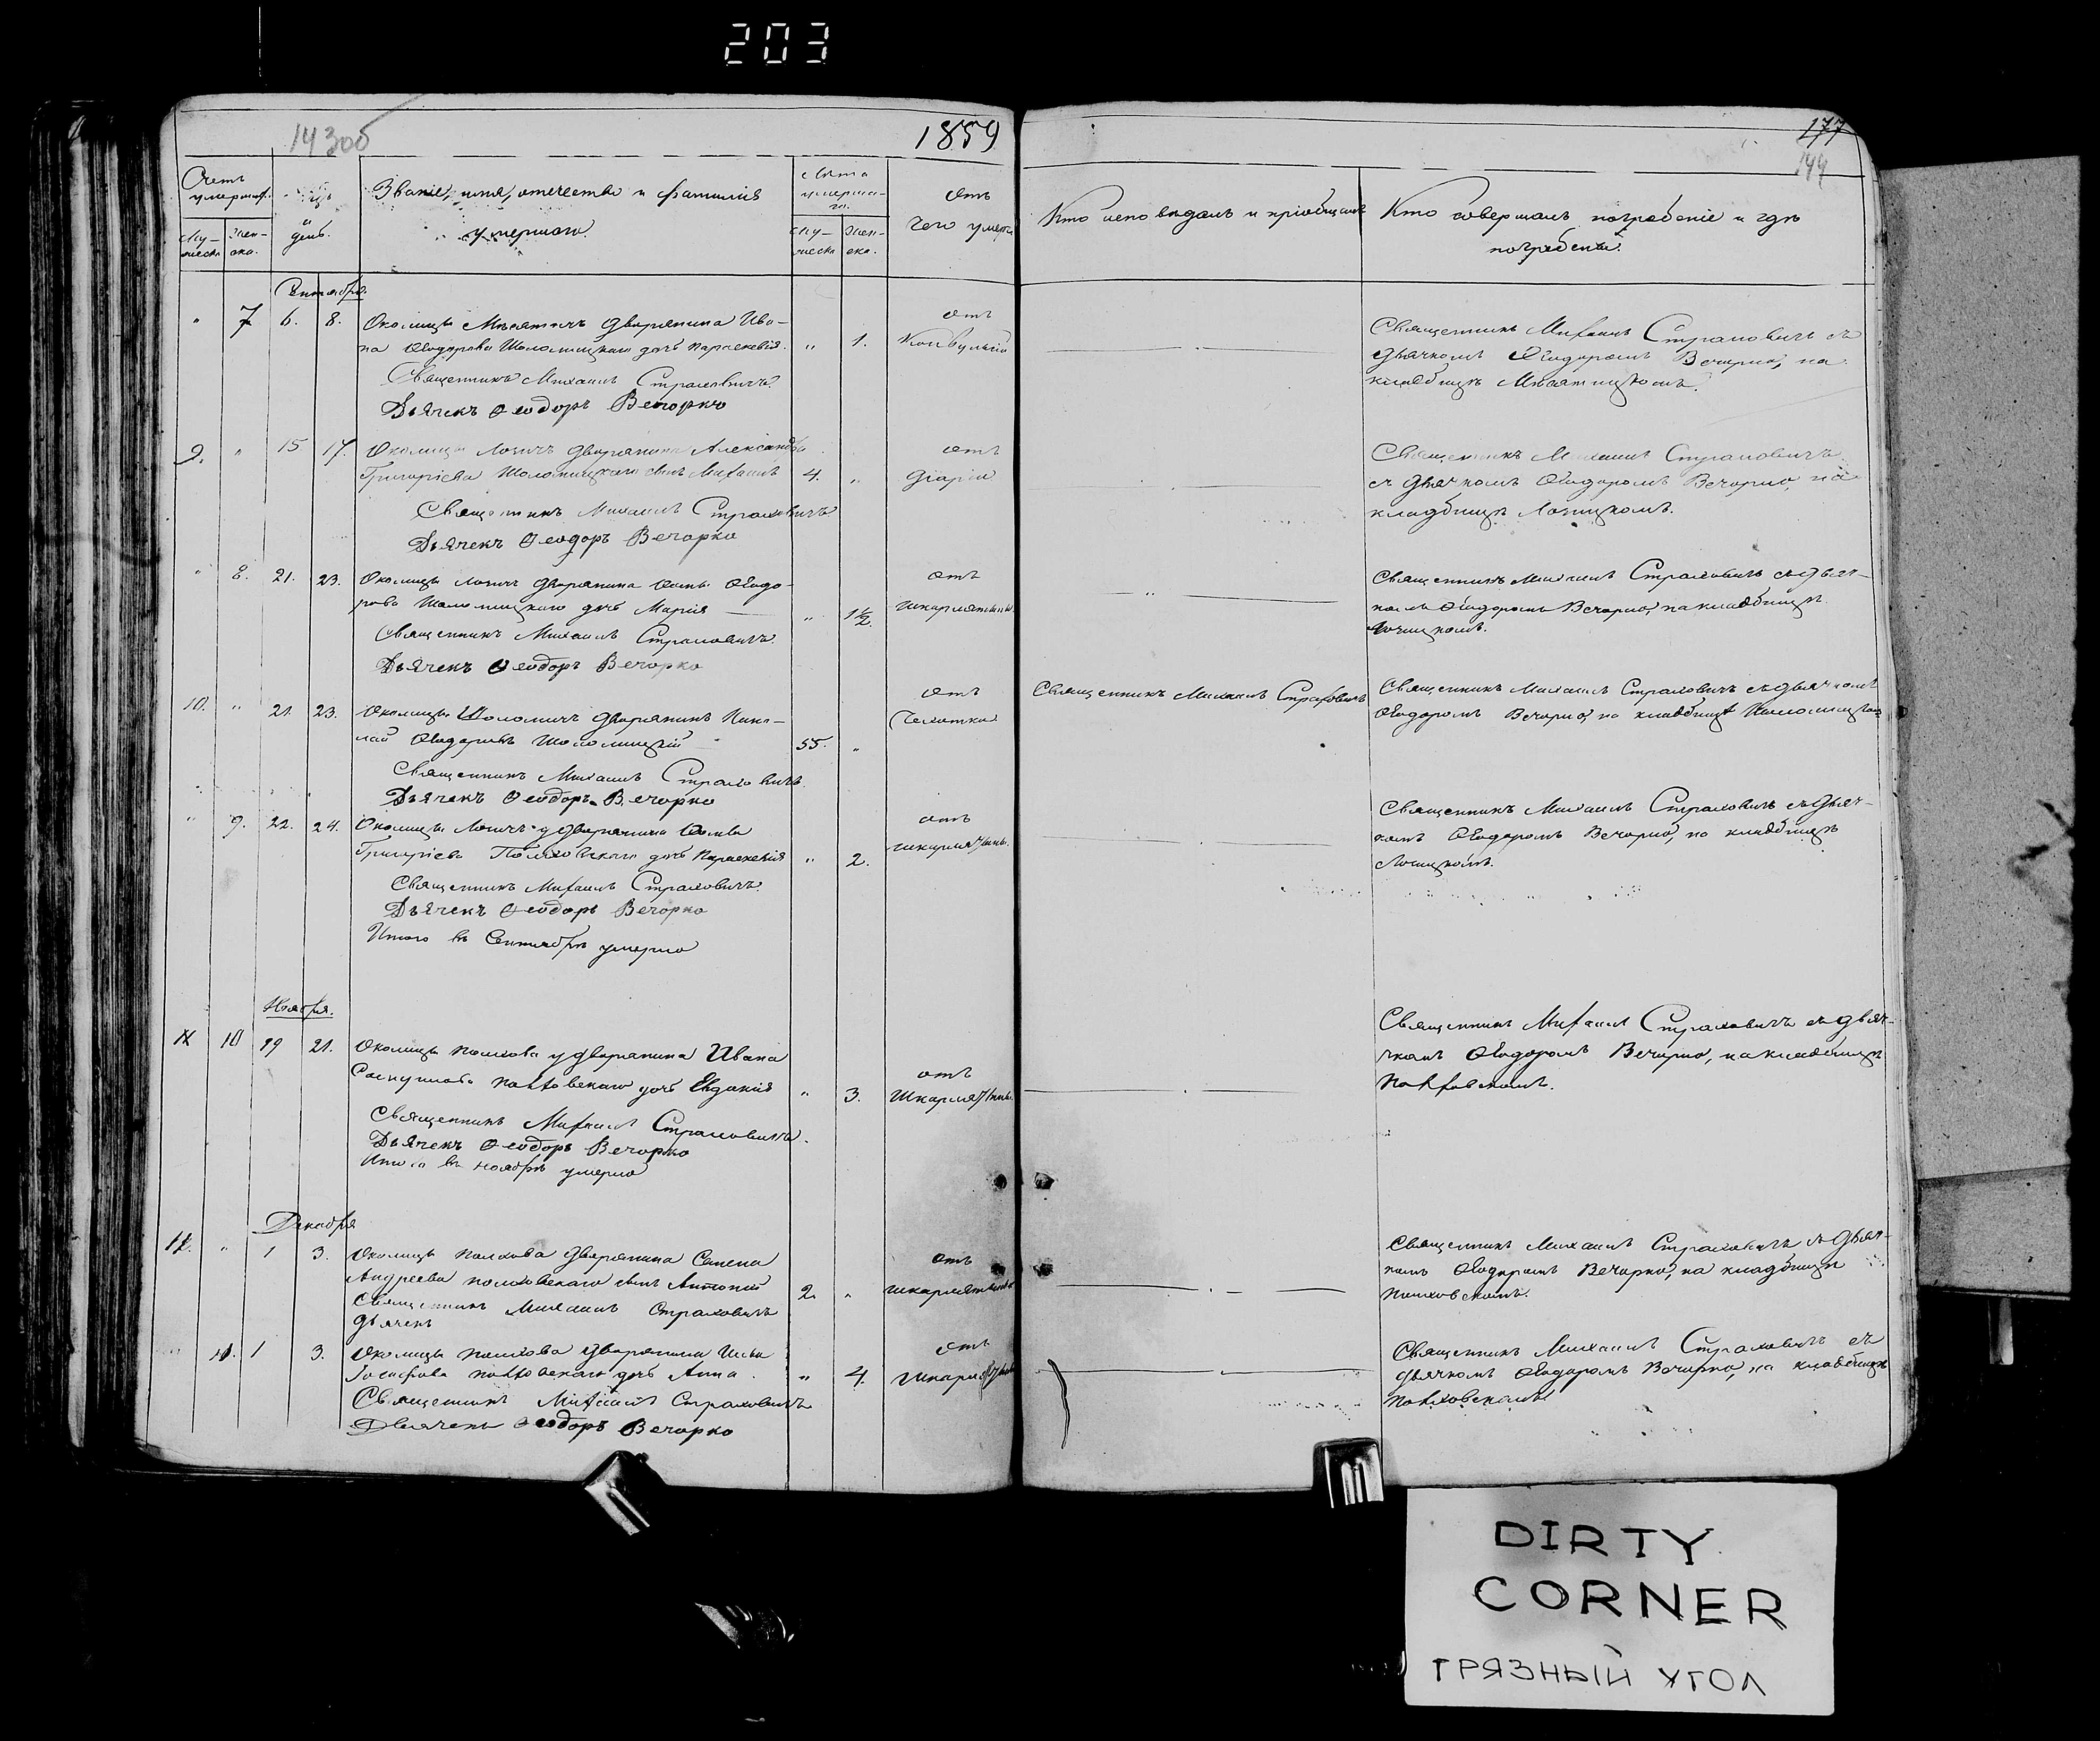 203
14300
1859
177
144
Счетъ умершихъ.
Мужеска
Женско.
и день.
Званіе, имя, отечество и фамилія
умершаго.
Лѣта умершаго.
Мужеска
Женско.
Отъ чего умеръ
Кто исповѣдалъ и пріобщалъ
Кто совершалъ погребеніе и гдѣ
погребены.
Сентября.
" 7 6. 8. Околицы дворянина Ива-
на Ѳеодорова Шоломицкаго дочь Параскевія. " 1. отъ
Священникъ Михаилъ Страховичъ.
Дьячекъ Ѳеодоръ Вечорко
Священникъ Михаилъ Страховичъ съ
дьячкомъ Ѳеодоромъ Вечорко, на
кладбищѣ
9. " 15 17. Околицы Лозичъ дворянина Александра
Григоріева Шоломицкаго сынъ Михаилъ 4. " отъ
діаріи
Священникъ Михаилъ Страховичъ
Дьячекъ Ѳеодоръ Вечорко
Священникъ Михаилъ Страховичъ
съ дьячкомъ Ѳеодоромъ Вечорко, на
кладбищѣ Лозицкомъ.
" 8. 21. 23. Околицы Лозичъ дворянина Ѳеодо-
рова Шоломицкаго дочь Марія " 1½ отъ
шкарлятины
Священникъ Михаилъ Страховичъ
Дьячекъ Ѳеодоръ Вечорко
Священникъ Михаилъ Страховичъ съ дьяч-
комъ Ѳеодоромъ Вечорко, на кладбищѣ
Лозицкомъ.
10. " 21. 23. Околицы Шоломичъ дворянинъ Нико-
лай Ѳеодоровъ Шоломицкій 55. " отъ
Чахотки
Священникъ Михаилъ Страховичъ
Дьячекъ Ѳеодоръ Вечорко
Священникъ Михаилъ Страховичъ
Священникъ Михаилъ Страховичъ съ дьячкомъ
Ѳеодоромъ Вечорко, на кладбищѣ Шоломицкомъ
" 9. 22. 24. Околицы Лозичъ у дворянина
Григоріева Полховскаго дочь Параскевія " 2. отъ
шкарлятины.
Священникъ Михаилъ Страховичъ.
Дьячекъ Ѳеодоръ Вечорко
Итого въ Сентябрѣ умерло
Священникъ Михаилъ Страховичъ съ дьяч-
комъ Ѳеодоромъ Вечорко, на кладбищѣ
Лозицкомъ.
Ноября.
11 10 19 21. Околицы Полхова у дворянина Ивана
Полховскаго дочь Евдокія " 3. отъ
Шкарлятины.
Священникъ Михаилъ Страховичъ.
Дьячекъ Ѳеодоръ Вечорко
Итого въ Ноябрѣ умерло
Священникъ Михаилъ Страховичъ съ дьяч-
комъ Ѳеодоромъ Вечорко, на кладбищѣ
Полховскомъ.
Декабря
" 1 3. Околицы Полхова дворянина Семена
Андреева Полховскаго сынъ Антоній 2. " отъ
шкарлятины
Священникъ Михаилъ Страховичъ
Дьячекъ
Священникъ Михаилъ Страховичъ съ дьяч-
комъ Ѳеодоромъ Вечорко, на кладбищѣ
Полховскомъ.
" 11. 1 3. Околицы Полхова дворянина Ильи
Іосифова Полховскаго дочь Анна. " 4. отъ
шкарлятины
Священникъ Михаилъ Страховичъ
Дьячекъ Ѳеодоръ Вечорко
Священникъ Михаилъ Страховичъ съ
дьячкомъ Ѳеодоромъ Вечорко, на кладбищѣ
Полховскомъ.
DIRTY
CORNER
ГРЯЗНЫЙ УГОЛ